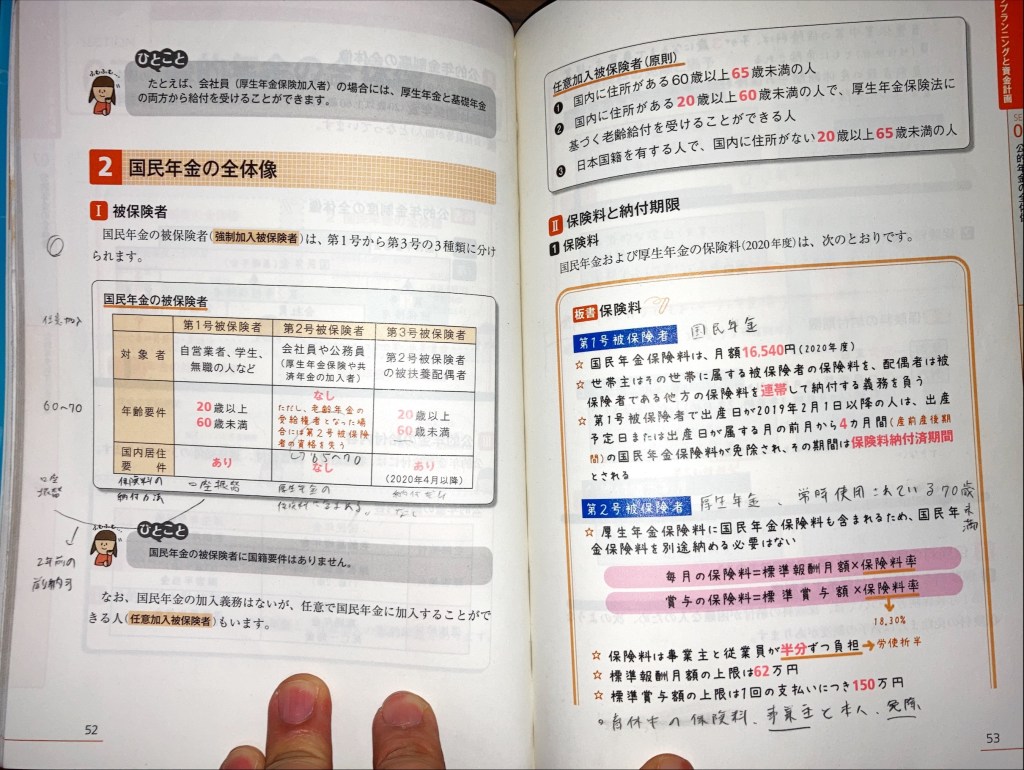 ひとこと
ふむふむ…
たとえば、会社員（厚生年金保険加入者）の場合には、厚生年金と基礎年金
の両方から給付を受けることができます。
2 国民年金の全体像
Ⅰ 被保険者
国民年金の被保険者（強制加入被保険者）は、第1号から第3号の3種類に分け
られます。
国民年金の被保険者
第1号被保険者 第2号被保険者 第3号被保険者
対象者
自営業者、学生、
無職の人など
会社員や公務員
（厚生年金保険や共
済年金の加入者）
第2号被保険者
の被扶養配偶者
年齢要件
20歳以上
60歳未満
なし
ただし、老齢年金の
受給権者となった場
合には第2号被保険
者の資格を失う
20歳以上
60歳未満
国内居住
要件
あり
なし
あり
（2020年4月以降）
60〜70
保険料の
納付方法
口座振替
厚生年金の
なし
口座
振替
2年前の
前納可
ひとこと
ふむふむ…
国民年金の被保険者に国籍要件はありません。
なお、国民年金の加入義務はないが、任意で国民年金に加入することがで
きる人（任意加入被保険者）もいます。
52
プランニングと資金計画
公的年金の全体像
任意加入被保険者（原則）
❶ 国内に住所がある60歳以上65歳未満の人
❷ 国内に住所がある20歳以上60歳未満の人で、厚生年金保険法に
基づく老齢給付を受けることができる人
❸ 日本国籍を有する人で、国内に住所がない20歳以上65歳未満の人
Ⅱ 保険料と納付期限
1 保険料
国民年金および厚生年金の保険料（2020年度）は、次のとおりです。
板書 保険料
第1号被保険者 国民年金
☆ 国民年金保険料は、月額16,540円（2020年度）
☆ 世帯主はその世帯に属する被保険者の保険料を、配偶者は被
保険者である他方の保険料を連帯して納付する義務を負う
☆ 第1号被保険者で出産日が2019年2月1日以降の人は、出産
予定日または出産日が属する月の前月から4カ月間（産前産後期
間）の国民年金保険料が免除され、その期間は保険料納付済期間
とされる
第2号被保険者 厚生年金、常時使用されている70歳
未満
☆ 厚生年金保険料に国民年金保険料も含まれるため、国民年
金保険料を別途納める必要はない
毎月の保険料=標準報酬月額×保険料率
賞与の保険料=標準賞与額×保険料率
18.30%
☆ 保険料は事業主と従業員が半分ずつ負担→労使折半
☆ 標準報酬月額の上限は62万円
☆ 標準賞与額の上限は1回の支払いにつき150万円
。育休中の保険料、事業主と本人、免除
53